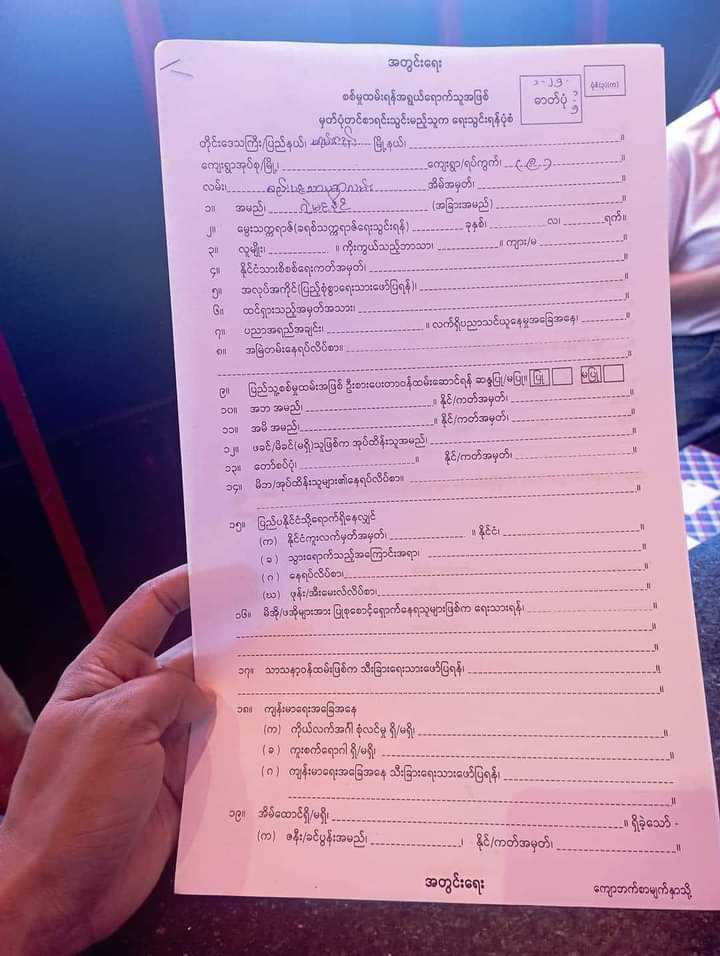 အတွင်းရေး
ပုံစံ(၃)(က)
ဓာတ်ပုံ
စစ်မှုထမ်းရန်အရွယ်ရောက်သူအဖြစ်
မှတ်ပုံတင်စာရင်းသွင်းမည့်သူက ရေးသွင်းရန်ပုံစံ
တိုင်းဒေသကြီး/ပြည်နယ်၊ မြို့နယ်၊ ။
ကျေးရွာအုပ်စု/မြို့၊ ကျေးရွာ/ရပ်ကွက်၊ ။
လမ်း၊ အိမ်အမှတ်၊ ။
၁။ အမည်၊ (အခြားအမည်) ။
၂။ မွေးသက္ကရာဇ်(ခရစ်သက္ကရာဇ်ရေးသွင်းရန်) ခုနှစ်၊ လ၊ ရက်။
၃။ လူမျိုး၊ ။ ကိုးကွယ်သည့်ဘာသာ၊ ။ ကျား/မ ။
၄။ နိုင်ငံသားစိစစ်ရေးကတ်အမှတ်၊ ။
၅။ အလုပ်အကိုင်(ပြည့်စုံစွာရေးသားဖော်ပြရန်)၊ ။
၆။ ထင်ရှားသည့်အမှတ်အသား၊ ။
၇။ ပညာအရည်အချင်း၊ ။ လက်ရှိပညာသင်ယူနေမှုအခြေအနေ၊ ။
၈။ အမြဲတမ်းနေရပ်လိပ်စာ။ ။
၉။ ပြည်သူ့စစ်မှုထမ်းအဖြစ် ဦးစားပေးတာဝန်ထမ်းဆောင်ရန် ဆန္ဒပြု/မပြု။ ပြု မပြု
၁၀။ အဘ အမည်၊ ။ နိုင်/ကတ်အမှတ်၊ ။
၁၁။ အမိ အမည်၊ ။ နိုင်/ကတ်အမှတ်၊ ။
၁၂။ ဖခင်/မိခင်(မရှိ)သူဖြစ်က အုပ်ထိန်းသူအမည်၊ ။
၁၃။ တော်စပ်ပုံ၊ ။ နိုင်/ကတ်အမှတ်၊ ။
၁၄။ မိဘ/အုပ်ထိန်းသူများ၏နေရပ်လိပ်စာ။ ။
၁၅။ ပြည်ပနိုင်ငံသို့ရောက်ရှိနေလျှင်
(က) နိုင်ငံကူးလက်မှတ်အမှတ်၊ ။ နိုင်ငံ၊ ။
(ခ) သွားရောက်သည့်အကြောင်းအရာ၊ ။
(ဂ) နေရပ်လိပ်စာ၊ ။
(ဃ) ဖုန်း/အီးမေးလ်လိပ်စာ၊ ။
၁၆။ မိအို/ဖအိုများအား ပြုစုစောင့်ရှောက်နေရသူများဖြစ်က ရေးသားရန်၊ ။
။
။
၁၇။ သာသနာ့ဝန်ထမ်းဖြစ်က သီးခြားရေးသားဖော်ပြရန်၊ ။
။
၁၈။ ကျန်းမာရေးအခြေအနေ
(က) ကိုယ်လက်အင်္ဂါ စုံလင်မှု ရှိ/မရှိ၊ ။
(ခ) ကူးစက်ရောဂါ ရှိ/မရှိ၊ ။
(ဂ) ကျန်းမာရေးအခြေအနေ သီးခြားရေးသားဖော်ပြရန်၊
။
၁၉။ အိမ်ထောင်ရှိ/မရှိ၊ ။ ရှိခဲ့သော် -
(က) ဇနီး/ခင်ပွန်းအမည်၊ ၊ နိုင်/ကတ်အမှတ်၊ ။
အတွင်းရေး
ကျောဘက်စာမျက်နှာသို့